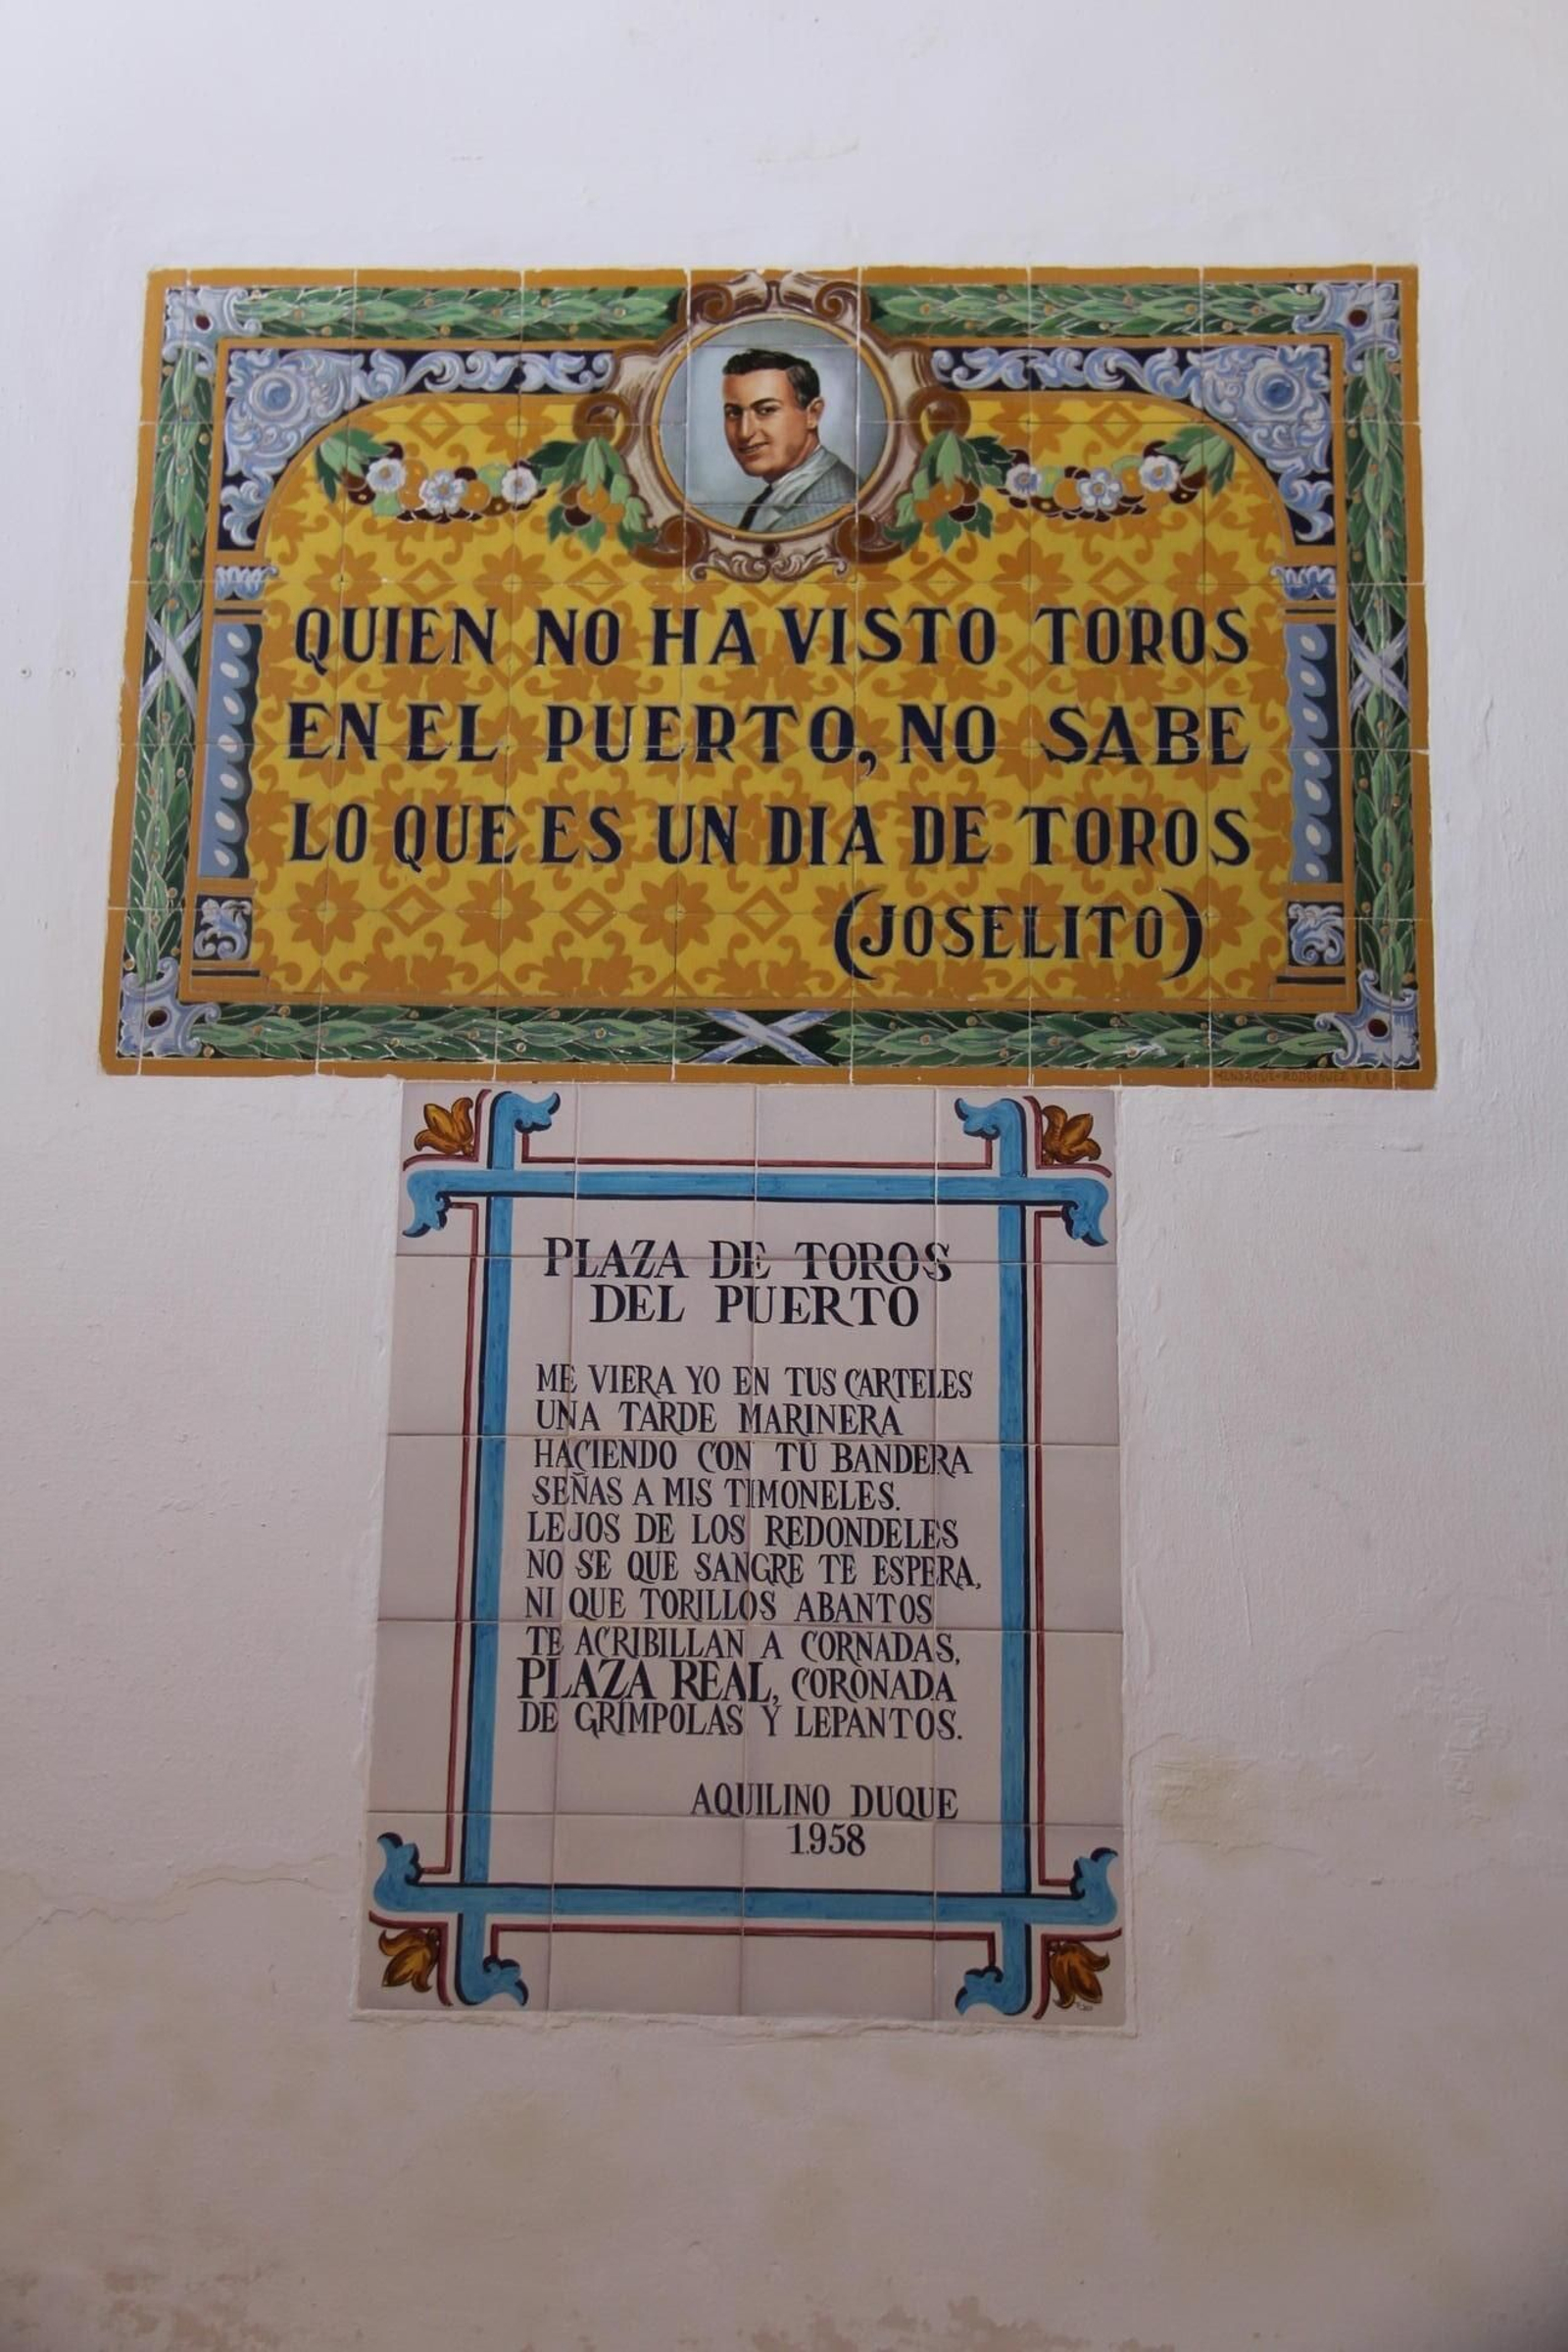 QUIEN NO HA VISTO TOROS
EN EL PUERTO, NO SABE
LO QUE ES UN DIA DE TOROS
(JOSELITO)
MENSAQUE-RODRIGUEZ Y
PLAZA DE TOROS
DEL PUERTO
ME VIERA YO EN TUS CARTELES
UNA TARDE MARINERA
HACIENDO CON TU BANDERA
SEÑAS A MIS TIMONELES.
LEJOS DE LOS REDONDELES
NO SE QUE SANGRE TE ESPERA,
NI QUE TORILLOS ABANTOS
TE ACRIBILLAN A CORNADAS,
PLAZA REAL, CORONADA
DE GRIMPOLAS Y LEPANTOS.
AQUILINO DUQUE
1958